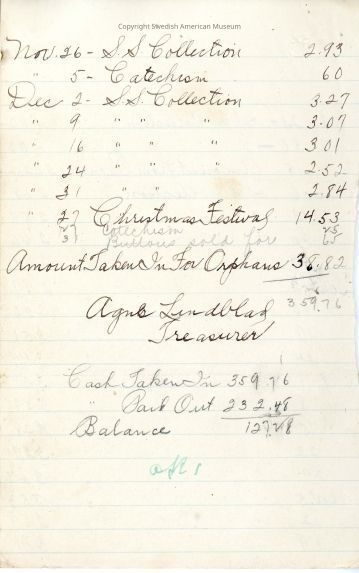 Copyright Swedish American Museum
Nov. 26 - S.S Collection 2.93
" 5 - Catechism 60
Dec 2 - S.S. Collection 3.27
" 9 " " " 3.07
" 16 " " " 3.01
" 24 " " 2.52
" 31 " " 2.84
" 27 Christmas Festival 14.53
27 Catechism 25
31 Buttons sold for 65
Amount Taken In For Orphans 38.82
359.76
Agnes Lindblad
Treasurer
Cash Taken In 359.76
" Paid Out 232.48
Balance 127.28